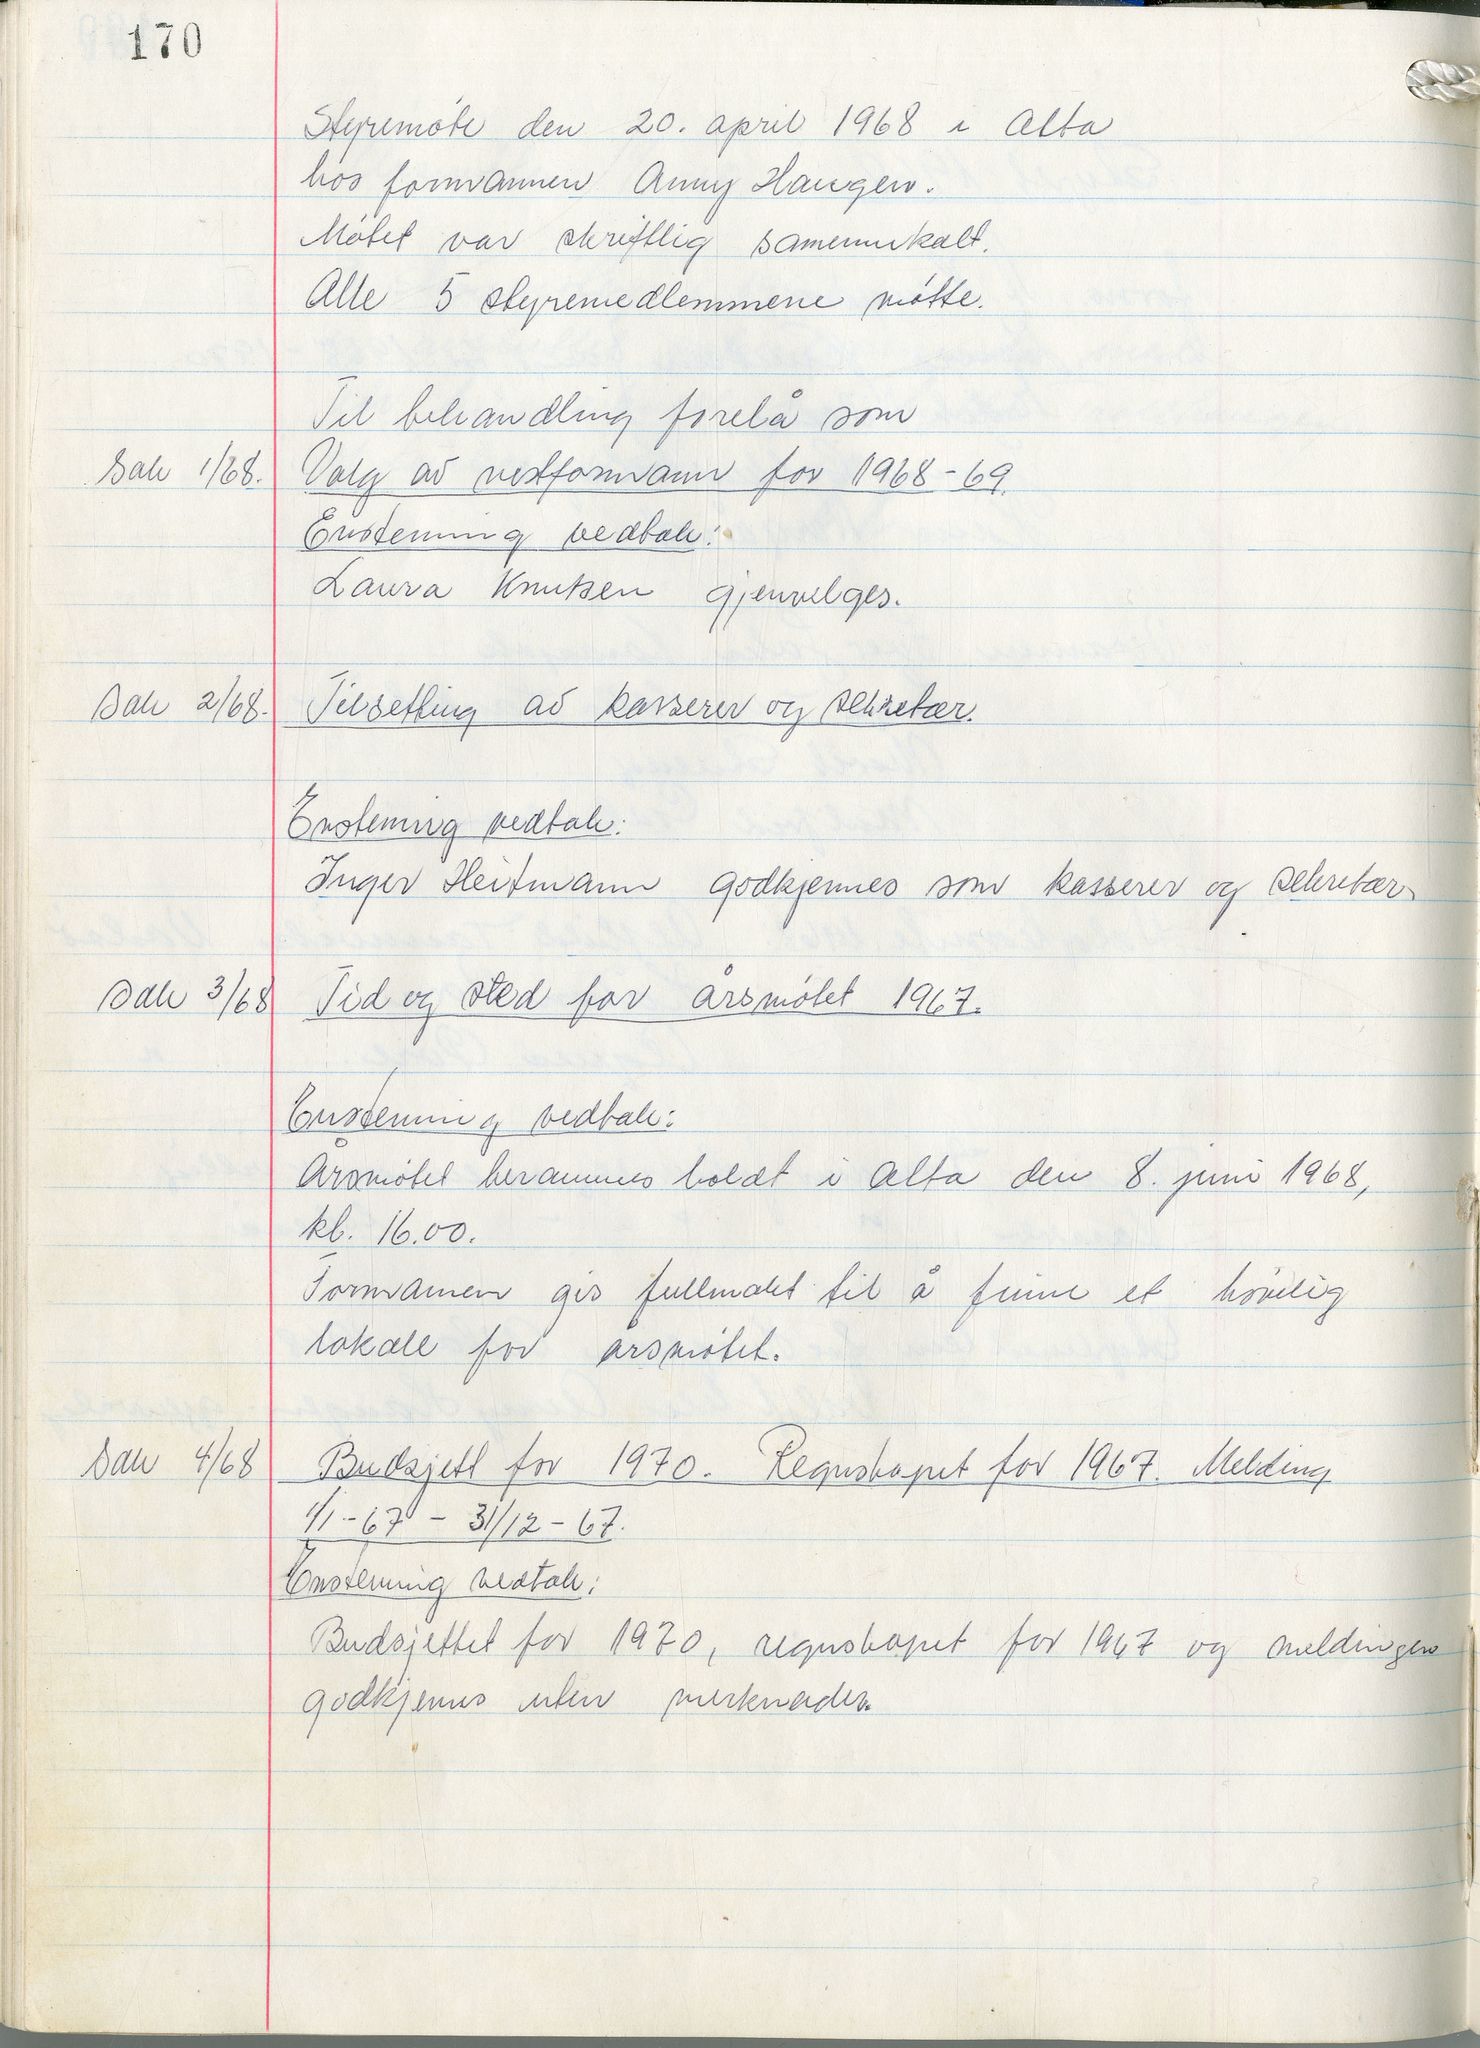 170
Styremøte den 20. april 1968 i Alta
hos formannen Anny Haugen.
Møtet var skriftlig sammenkalt.
Alle 5 styremedlemmene møtte.
Til behandling forelå som
Sak 1/68. Valg av nestformann for 1968-69.
Enstemmig vedtak:
Laura Knutsen gjenvelges.
Sak 2/68. Tilsetting av kasserer og sekretær.
Enstemmig vedtak:
Inger Heitmann godkjennes som kasserer og sekretær.
Sak 3/68 Tid og sted for årsmøtet 1967.
Enstemmig vedtak:
Årsmøtet berammes holdt i Alta den 8. juni 1968,
kl. 16.00.
Formannen gis fullmakt til å finne et høvelig
lokale for årsmøtet.
Sak 4/68 Budsjett for 1970. Regnskapet for 1967. Melding
1/1-67 - 31/12-67.
Enstemmig vedtak:
Budsjettet for 1970, regnskapet for 1967 og meldingen
godkjennes uten merknader.